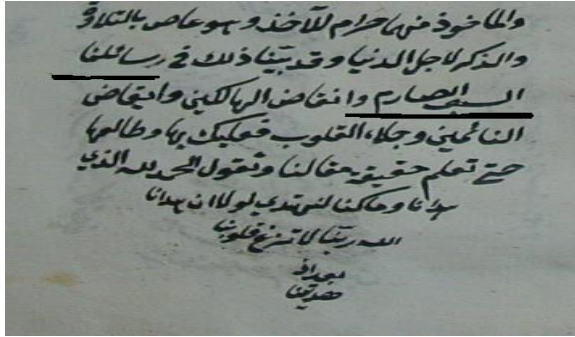 والماخوذ منها حرام للآخذ وهو عاص بالتلاوة
والذكر لاجل الدنيا وقد بينا ذلك في رسائلنا
السيف الصارم وانقاض الهالكين وايقاض
النائمين وجلاء القلوب فعليك بها وطالعها
حتى تعلم حقيقة مقالنا وتقول الحمد لله الذي
هدانا وما كنا لنهتدي لولا ان هدانا
الله ربنا لا تزغ قلوبنا
بعد اذ
هديتنا